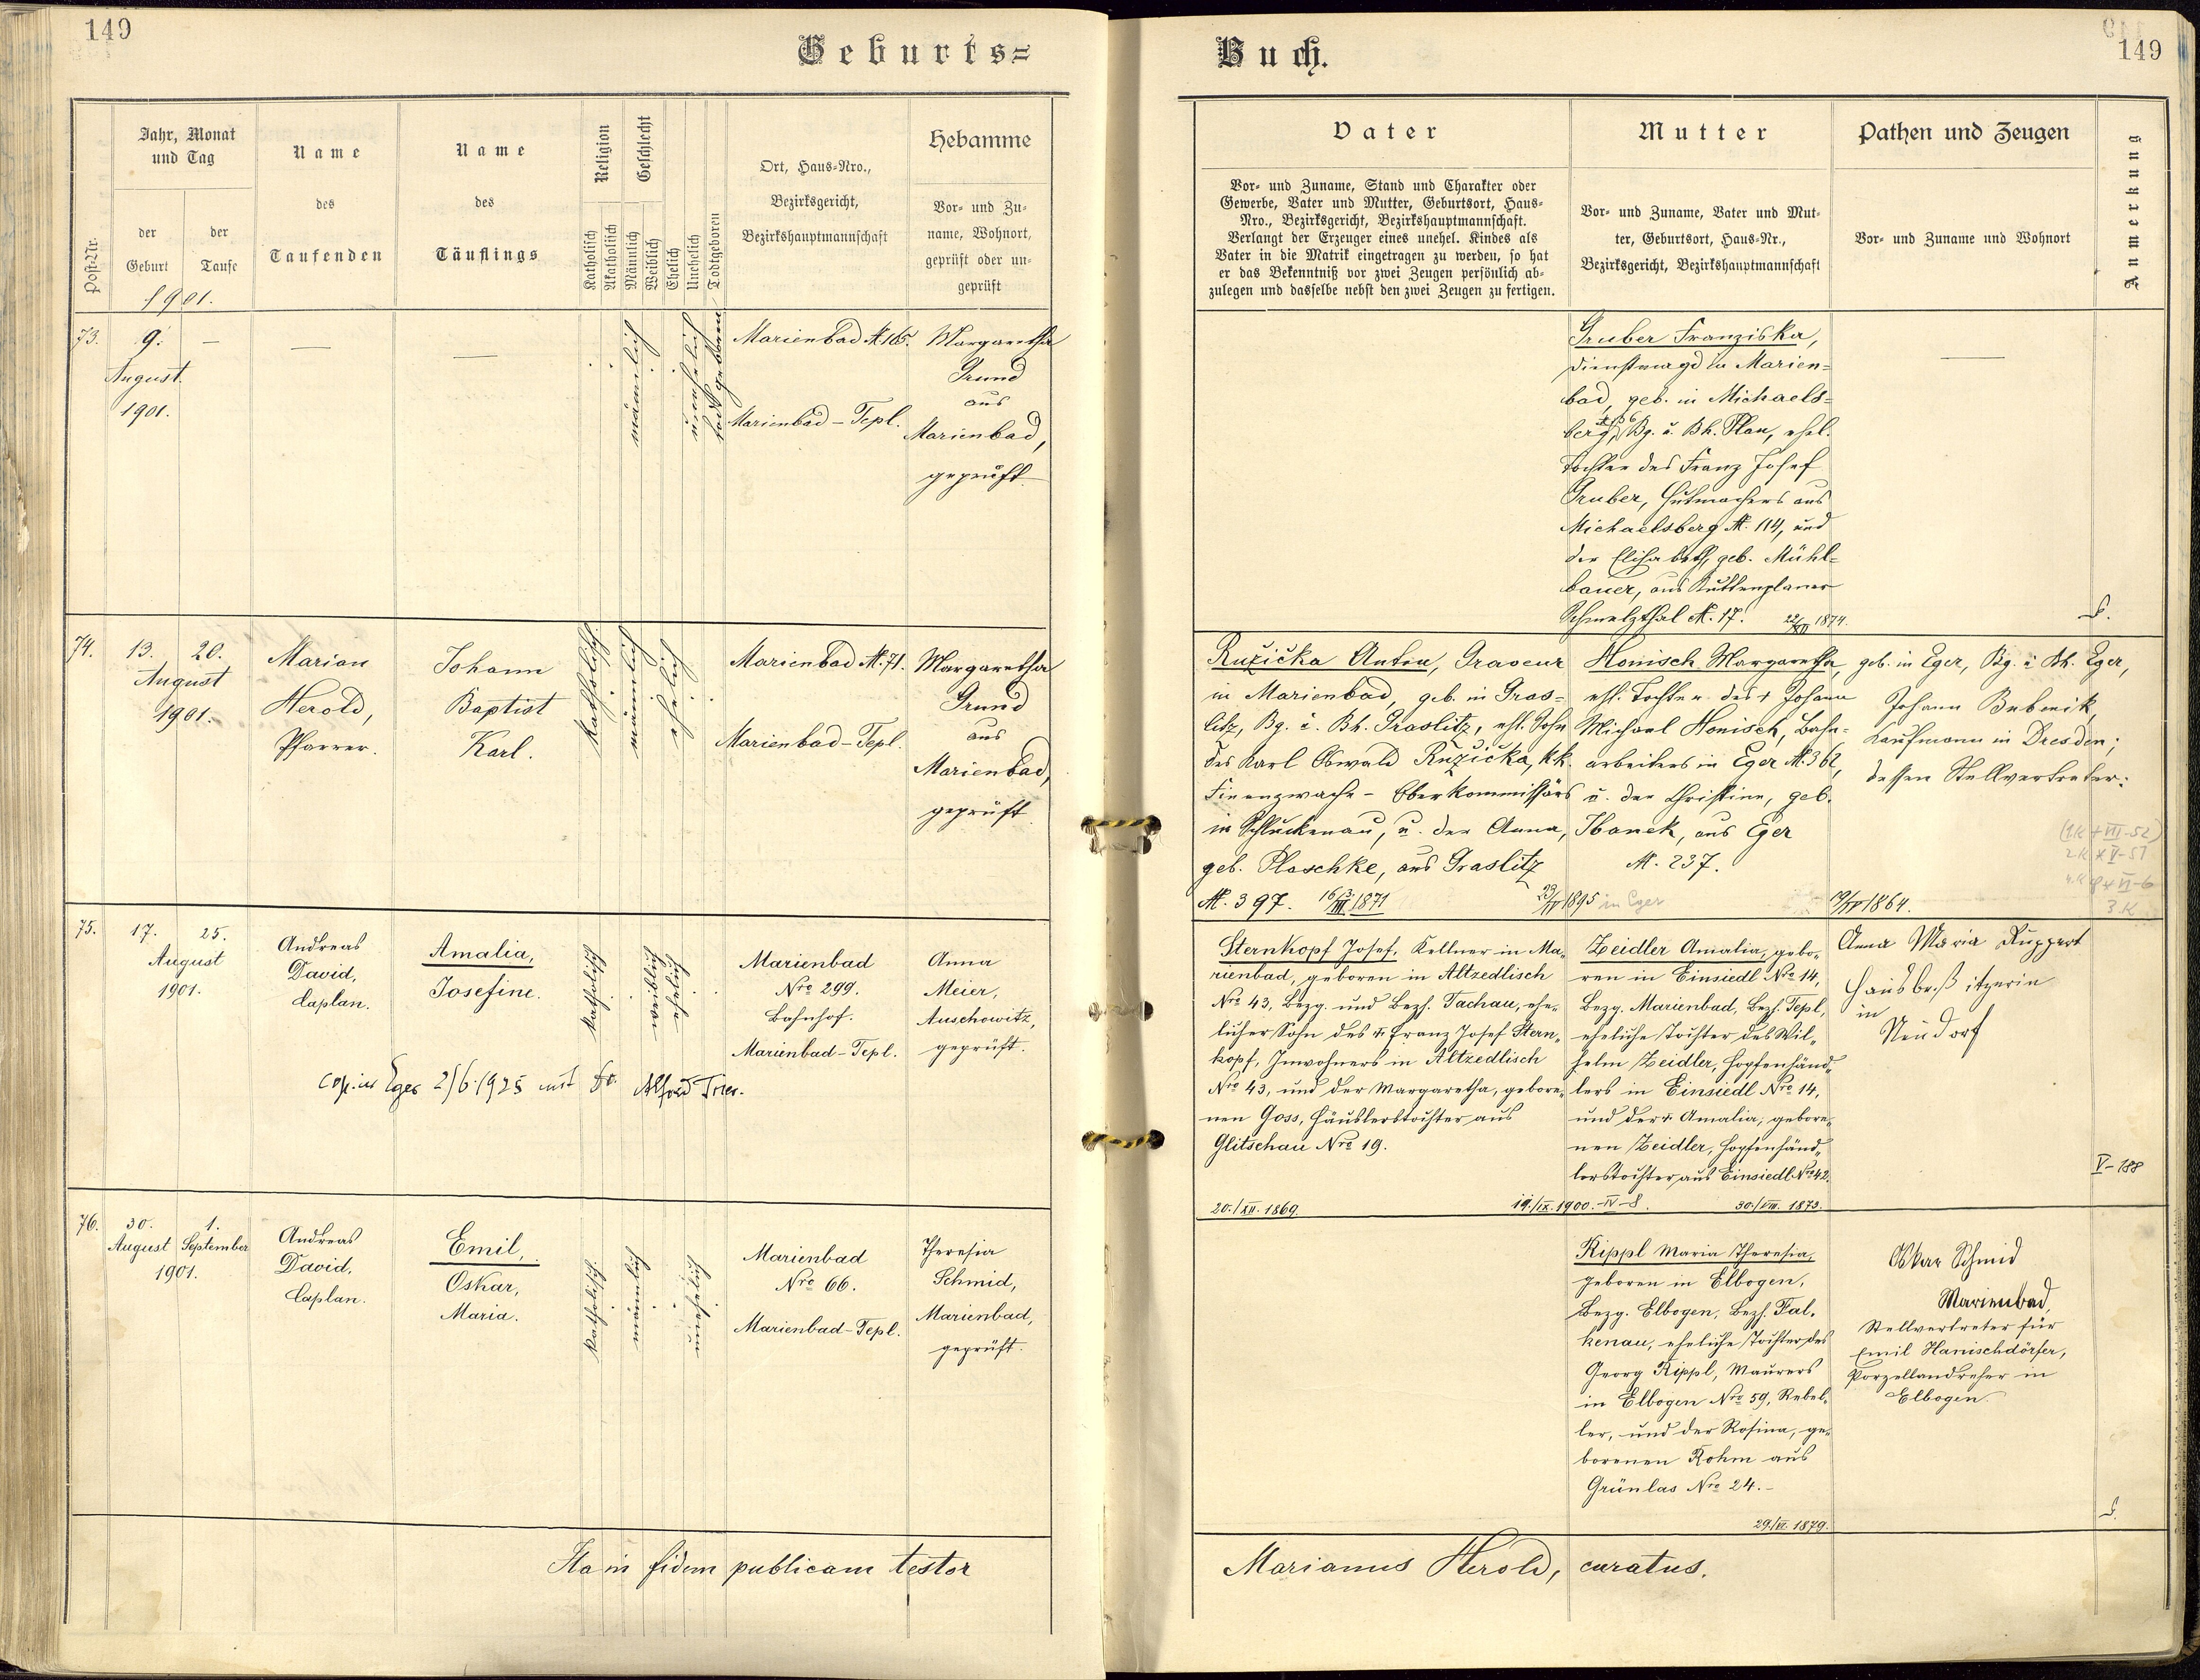 149
Geburts=
Buch.
149
Post-Nr.
Jahr, Monat
und Tag
der
Geburt
der
Taufe
1901.
Name
des
Taufenden
Name
des
Täuflings
Religion
Katholisch
Akatholisch
Geschlecht
Männlich
Weiblich
Ehelich
Unehelich
Todtgeboren
Ort, Haus-Nro.,
Bezirksgericht,
Bezirkshauptmannschaft
Hebamme
Vor- und Zu-
name, Wohnort,
geprüft oder un-
geprüft
Vater
Vor- und Zuname, Stand und Charakter oder
Gewerbe, Vater und Mutter, Geburtsort, Haus-
Nro., Bezirksgericht, Bezirkshauptmannschaft.
Verlangt der Erzeuger eines unehel. Kindes als
Vater in die Matrik eingetragen zu werden, so hat
er das Bekenntniß vor zwei Zeugen persönlich ab-
zulegen und dasselbe nebst den zwei Zeugen zu fertigen.
Mutter
Vor- und Zuname, Vater und Mut-
ter, Geburtsort, Haus-Nr.,
Bezirksgericht, Bezirkshauptmannschaft
Pathen und Zeugen
Vor- und Zuname und Wohnort
Anmerkung
73.
9.
August
1901.
—
—
—
männlich
unehelich
todtgeboren
Marienbad N. 185.
Marienbad – Tepl.
Margaretha
Grund
aus
Marienbad,
geprüft
Gruber Franziska,
Dienstmagd in Marien=
bad, geb. in Michaels=
berg, Bg. u. Bh. Plan, ehel.
Tochter des Franz Josef
Gruber, Hutmachers aus
Michaelsberg N. 114, und
der Elisabeth, geb. Mühl=
bauer, aus Kuttenplaner
Schmelzthal N. 17.
1874.
—
74.
13.
20.
August
1901.
Marian
Herold,
Pfarrer.
Johann
Baptist
Karl.
katholisch
männlich
ehelich
Marienbad N. 71.
Marienbad – Tepl.
Margaretha
Grund
aus
Marienbad,
geprüft
Ružička Anton, Graveur
in Marienbad, geb. in Gras=
litz, Bg. u. Bh. Graslitz, ehl. Sohn
des Karl Oswald Ružička, k.k.
Finanzwache - Oberkommissärs
in Schluckenau, u. der Anna,
geb. Plaschke, aus Graslitz
N. 397. 1871
1895 in Eger
Honisch Margaretha, geb. in Eger, Bg. u. Bh. Eger,
ehl. Tochter des + Johann
Michael Honisch, Bahn=
arbeiters in Eger N. 362,
u. der Christine, geb.
Hanek, aus Eger
N. 237.
1864.
Johann Bubenik,
Kaufmann in Dresden;
dessen Stellvertreter:
75.
17.
25.
August
1901.
Andreas
David,
Caplan.
Amalia,
Josefine.
katholisch
weiblich
ehelich
Marienbad
Nro 299.
Bahnhof.
Marienbad – Tepl.
Anna
Meier,
Auschowitz,
geprüft.
cop. in Eger 2/6. 1925 mit Alfred Trier.
Sternkopf Josef, Kellner in Ma„
rienbad, geboren in Altzedlisch
Nro 43, Bezg. und Bezh. Tachau, ehe„
licher Sohn des + Franz Josef Stern„
kopf, Inwohners in Altzedlisch
Nro 43, und der Margaretha, gebore„
nen Goss, Häuslerstochter aus
Glitschau Nro 19.
20./XII. 1869.
19./IX. 1900. – IV – 8.
Zeidler Amalia, gebo„
ren in Einsiedl Nro 14,
Bezg. Marienbad, Bezh. Tepl,
eheliche Tochter des Wil„
helm Zeidler, Hopfenhänd„
lers in Einsiedl Nro 14,
und der + Amalia, gebore„
nen Zeidler, Hopfenhänd„
lerstochter aus Einsiedl Nro 42.
30./VIII. 1873.
Anna Maria Ruppert
Hausbesitzerin
in
Neudorf
V – 188
76.
30.
August
1.
September
1901.
Andreas
David,
Caplan.
Emil,
Oskar,
Maria.
katholisch
männlich
unehelich
Marienbad
Nro 66.
Marienbad – Tepl.
Theresia
Schmid,
Marienbad,
geprüft.
Rippl Maria Theresia,
geboren in Elbogen,
Bezg. Elbogen, Bezh. Fal„
kenau, eheliche Tochter des
Georg Rippl, Maurers
in Elbogen Nro 59,
und der Rosina, ge„
borenen Rohm aus
Grünlas Nro 24. –
29./VI. 1879.
Oskar Schmid
Marienbad,
Stellvertreter für
Emil Hanischdörfer,
Porzellandreher in
Elbogen.
Ita in fidem publicam testor
Marianus Herold, curatus.